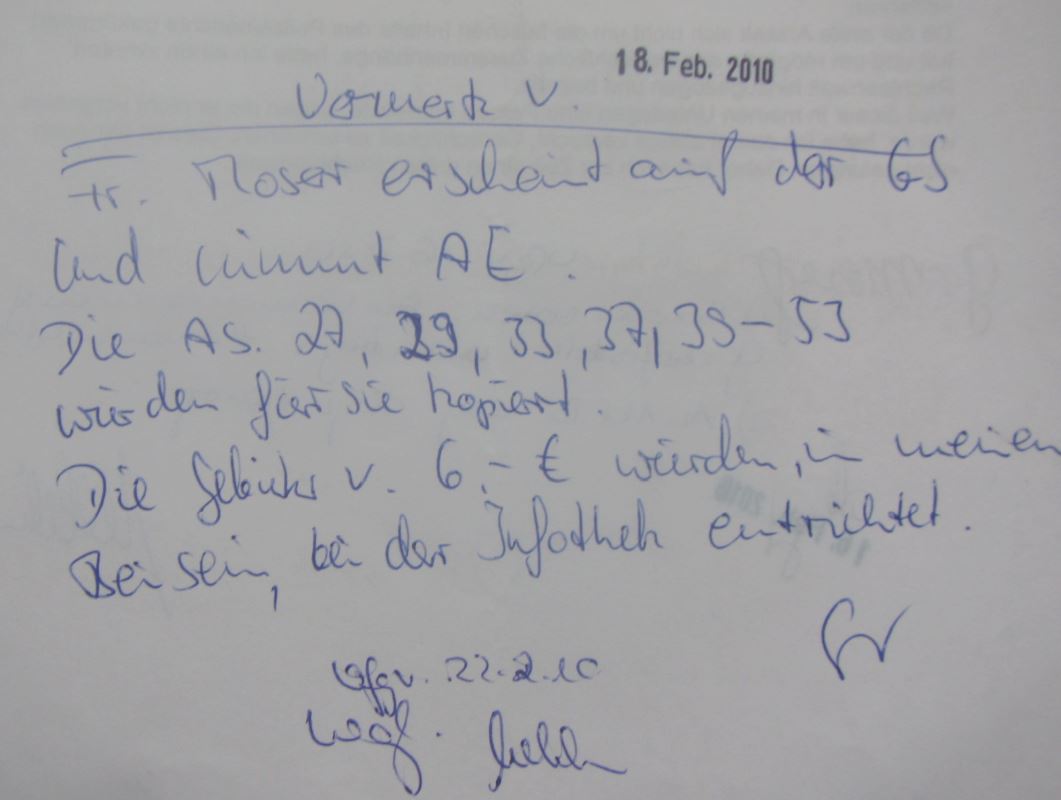 Vermerk v. 18. Feb. 2010
Fr. Moser erscheint auf der GS
und nimmt AE.
Die AS. 27, 29, 33, 37, 39-53
wurden für sie kopiert.
Die Gebühr v. 6,- € wurden, in meinem
Beisein, bei der Infothek entrichtet.
Vfg v. 22.2.10